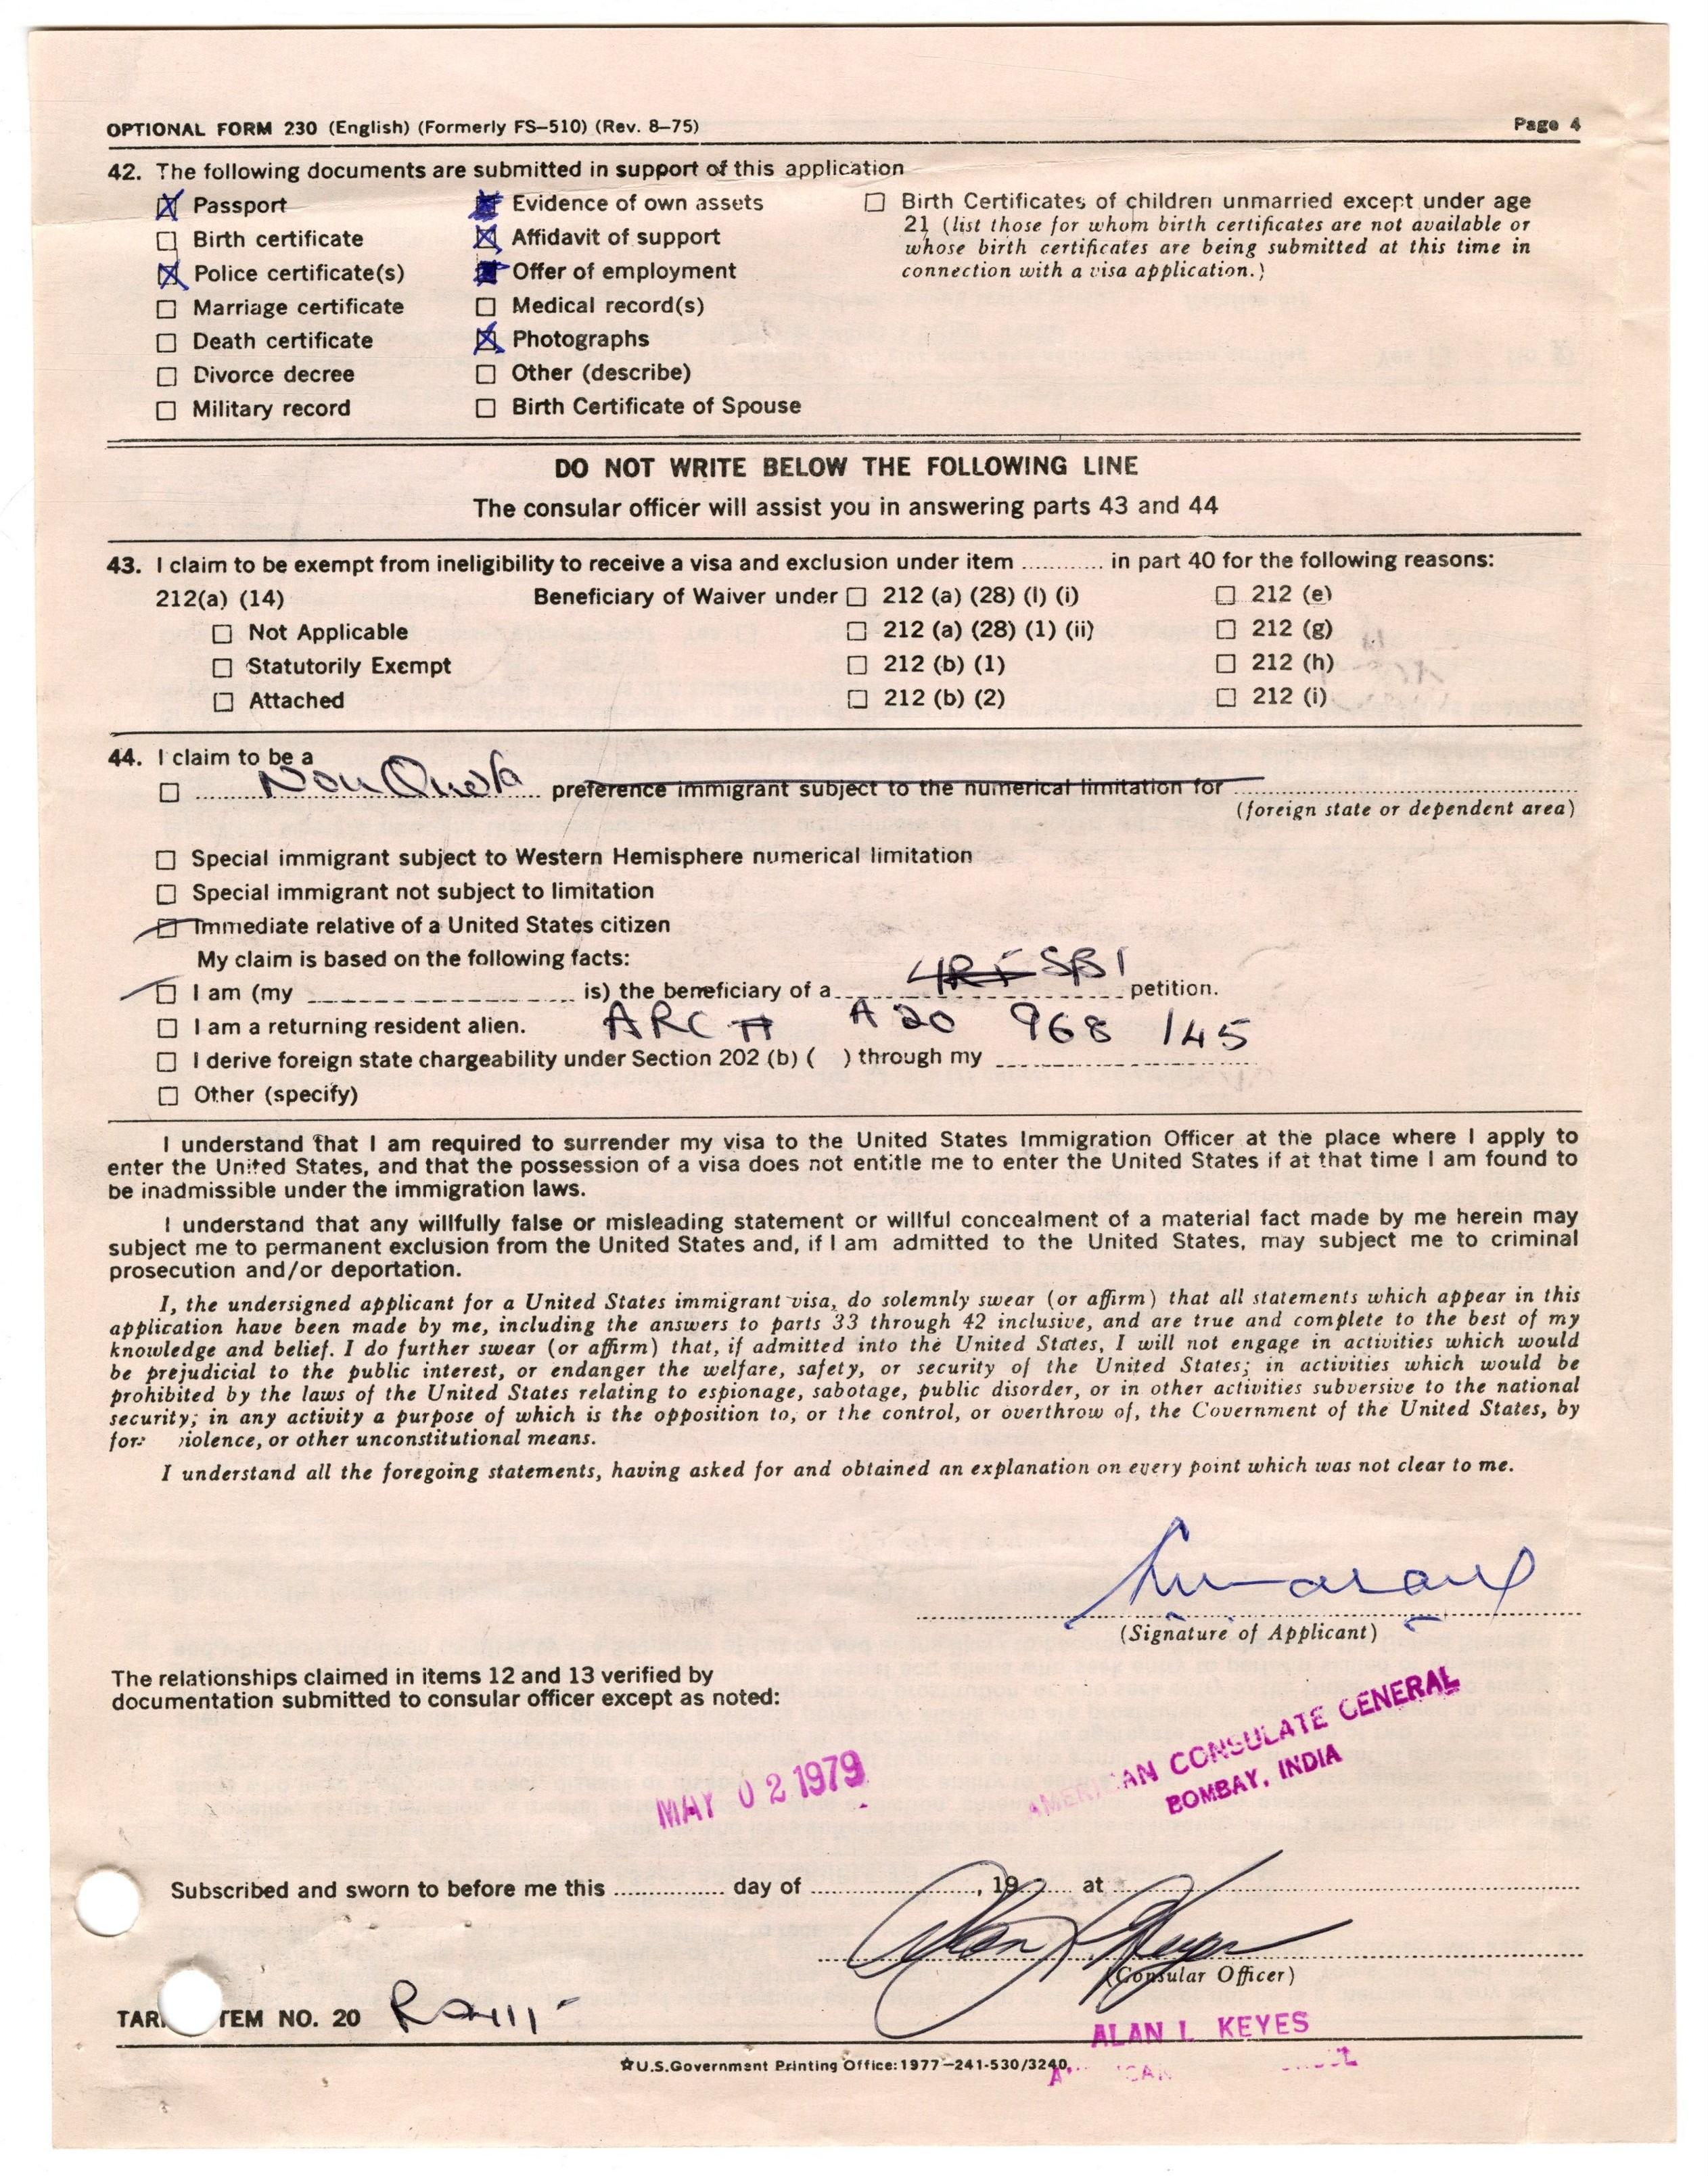 OPTIONAL FORM 230 (English) (Formerly FS-510) (Rev. 8-75) Page 4
42. The following documents are submitted in support of this application
Passport
Birth certificate
Police certificate(s)
Marriage certificate
Death certificate
Divorce decree
Military record
Evidence of own assets
Affidavit of support
Offer of employment
Medical record(s)
Photographs
Other (describe)
Birth Certificate of Spouse
Birth Certificates of children unmarried except under age
21 (list those for whom birth certificates are not available or
whose birth certificates are being submitted at this time in
connection with a visa application.)
DO NOT WRITE BELOW THE FOLLOWING LINE
The consular officer will assist you in answering parts 43 and 44
43. I claim to be exempt from ineligibility to receive a visa and exclusion under item ............ in part 40 for the following reasons:
212(a) (14) Beneficiary of Waiver under 212 (a) (28) (I) (i) 212 (e)
Not Applicable 212 (a) (28) (1) (ii) 212 (g)
Statutorily Exempt 212 (b) (1) 212 (h)
Attached 212 (b) (2) 212 (i)
44. I claim to be a
Non Quota preference immigrant subject to the numerical limitation for
(foreign state or dependent area)
Special immigrant subject to Western Hemisphere numerical limitation
Special immigrant not subject to limitation
Immediate relative of a United States citizen
My claim is based on the following facts:
I am (my is) the beneficiary of a SB1 petition.
I am a returning resident alien. ARC # A20 968 145
I derive foreign state chargeability under Section 202 (b) ( ) through my
Other (specify)
I understand that I am required to surrender my visa to the United States Immigration Officer at the place where I apply to
enter the United States, and that the possession of a visa does not entitle me to enter the United States if at that time I am found to
be inadmissible under the immigration laws.
I understand that any willfully false or misleading statement or willful concealment of a material fact made by me herein may
subject me to permanent exclusion from the United States and, if I am admitted to the United States, may subject me to criminal
prosecution and/or deportation.
I, the undersigned applicant for a United States immigrant visa, do solemnly swear (or affirm) that all statements which appear in this
application have been made by me, including the answers to parts 33 through 42 inclusive, and are true and complete to the best of my
knowledge and belief. I do further swear (or affirm) that, if admitted into the United States, I will not engage in activities which would
be prejudicial to the public interest, or endanger the welfare, safety, or security of the United States; in activities which would be
prohibited by the laws of the United States relating to espionage, sabotage, public disorder, or in other activities subversive to the national
security; in any activity a purpose of which is the opposition to, or the control, or overthrow of, the Government of the United States, by
for violence, or other unconstitutional means.
I understand all the foregoing statements, having asked for and obtained an explanation on every point which was not clear to me.
(Signature of Applicant)
The relationships claimed in items 12 and 13 verified by
documentation submitted to consular officer except as noted:
AMERICAN CONSULATE GENERAL
BOMBAY, INDIA
MAY 02 1979
Subscribed and sworn to before me this ................ day of ........................, 19 ...... at
(Consular Officer)
TAR TEM NO. 20
ALAN L KEYES
☆U.S.Government Printing Office: 1977-241-530/3240